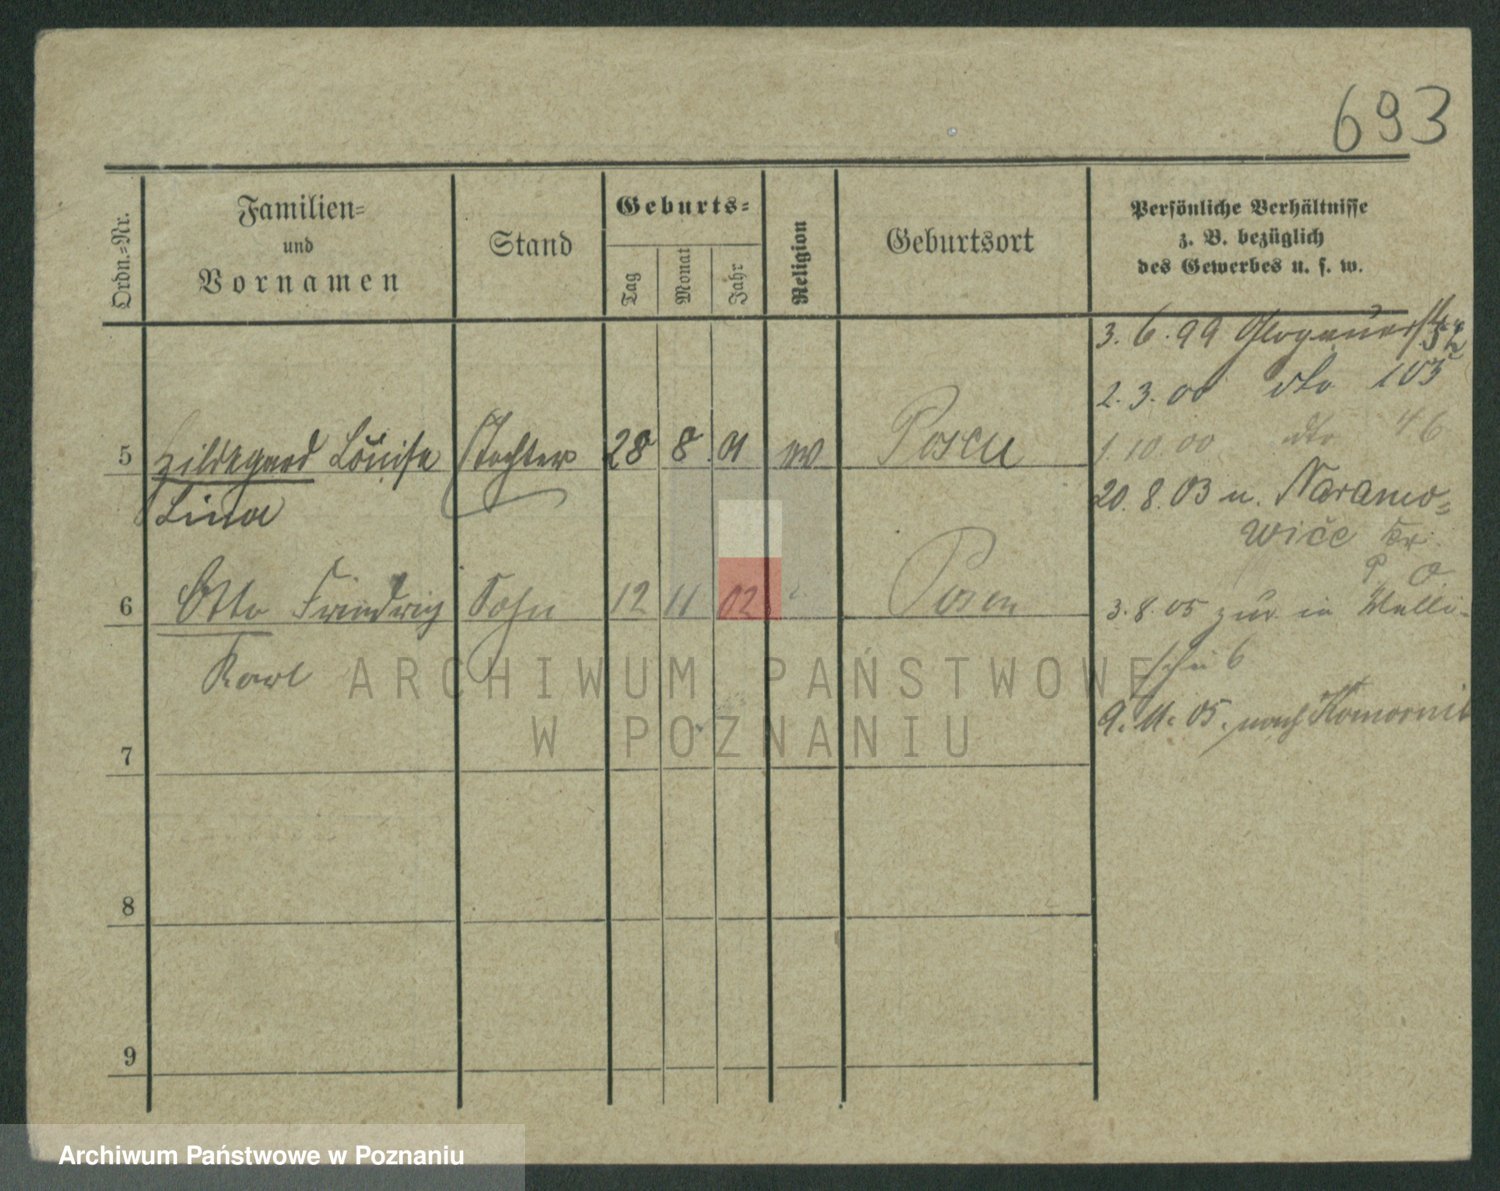 693
Ordn.=Nr.
Familien=
und
Vornamen
Stand
Geburts=
Tag
Monat
Jahr
Religion
Geburtsort
Persönliche Verhältnisse
z. B. bezüglich
des Gewerbes u. s. w.
3. 6. 99 Glogauerstr
2. 3. 00 dto 103
1. 10. 00 dto 46
5 Hildegard Louise Tochter 28 8 01 ev Posen
Lina
20. 8. 03 n. Naramo=
wice Kr.
P. O.
6 Otto Friedrich Sohn 12 11 02 Posen
Karl
3. 8. 05 zur in Walli-
schei 6
9. 11. 05. nach Komornik
7
8
9
ARCHIWUM PAŃSTWOWE
W POZNANIU
Archiwum Państwowe w Poznaniu